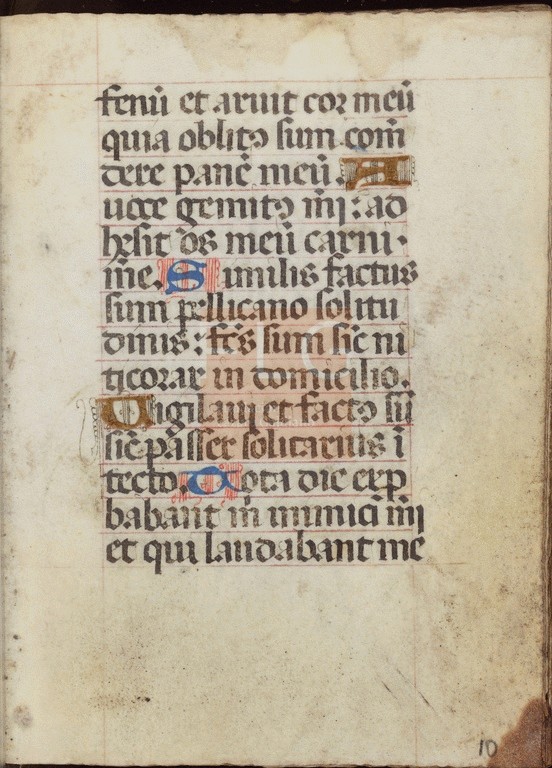 fenū et aruit cor meū
quia oblitꝯ sum com̄
dere panē meū. A
uoce gemitꝯ m̄i: ad
hesit os meū carni·
m̄e. Similis factus
sum pellicano solitu
dinis: fc̄s sum sic̄ ni
ticorax in domicilio.
Uigilaui et factꝯ sū
sic̄ passer solitarius ī
tecto. Tota die exp
babant m̄ inimici m̄i
et qui laudabant me
10